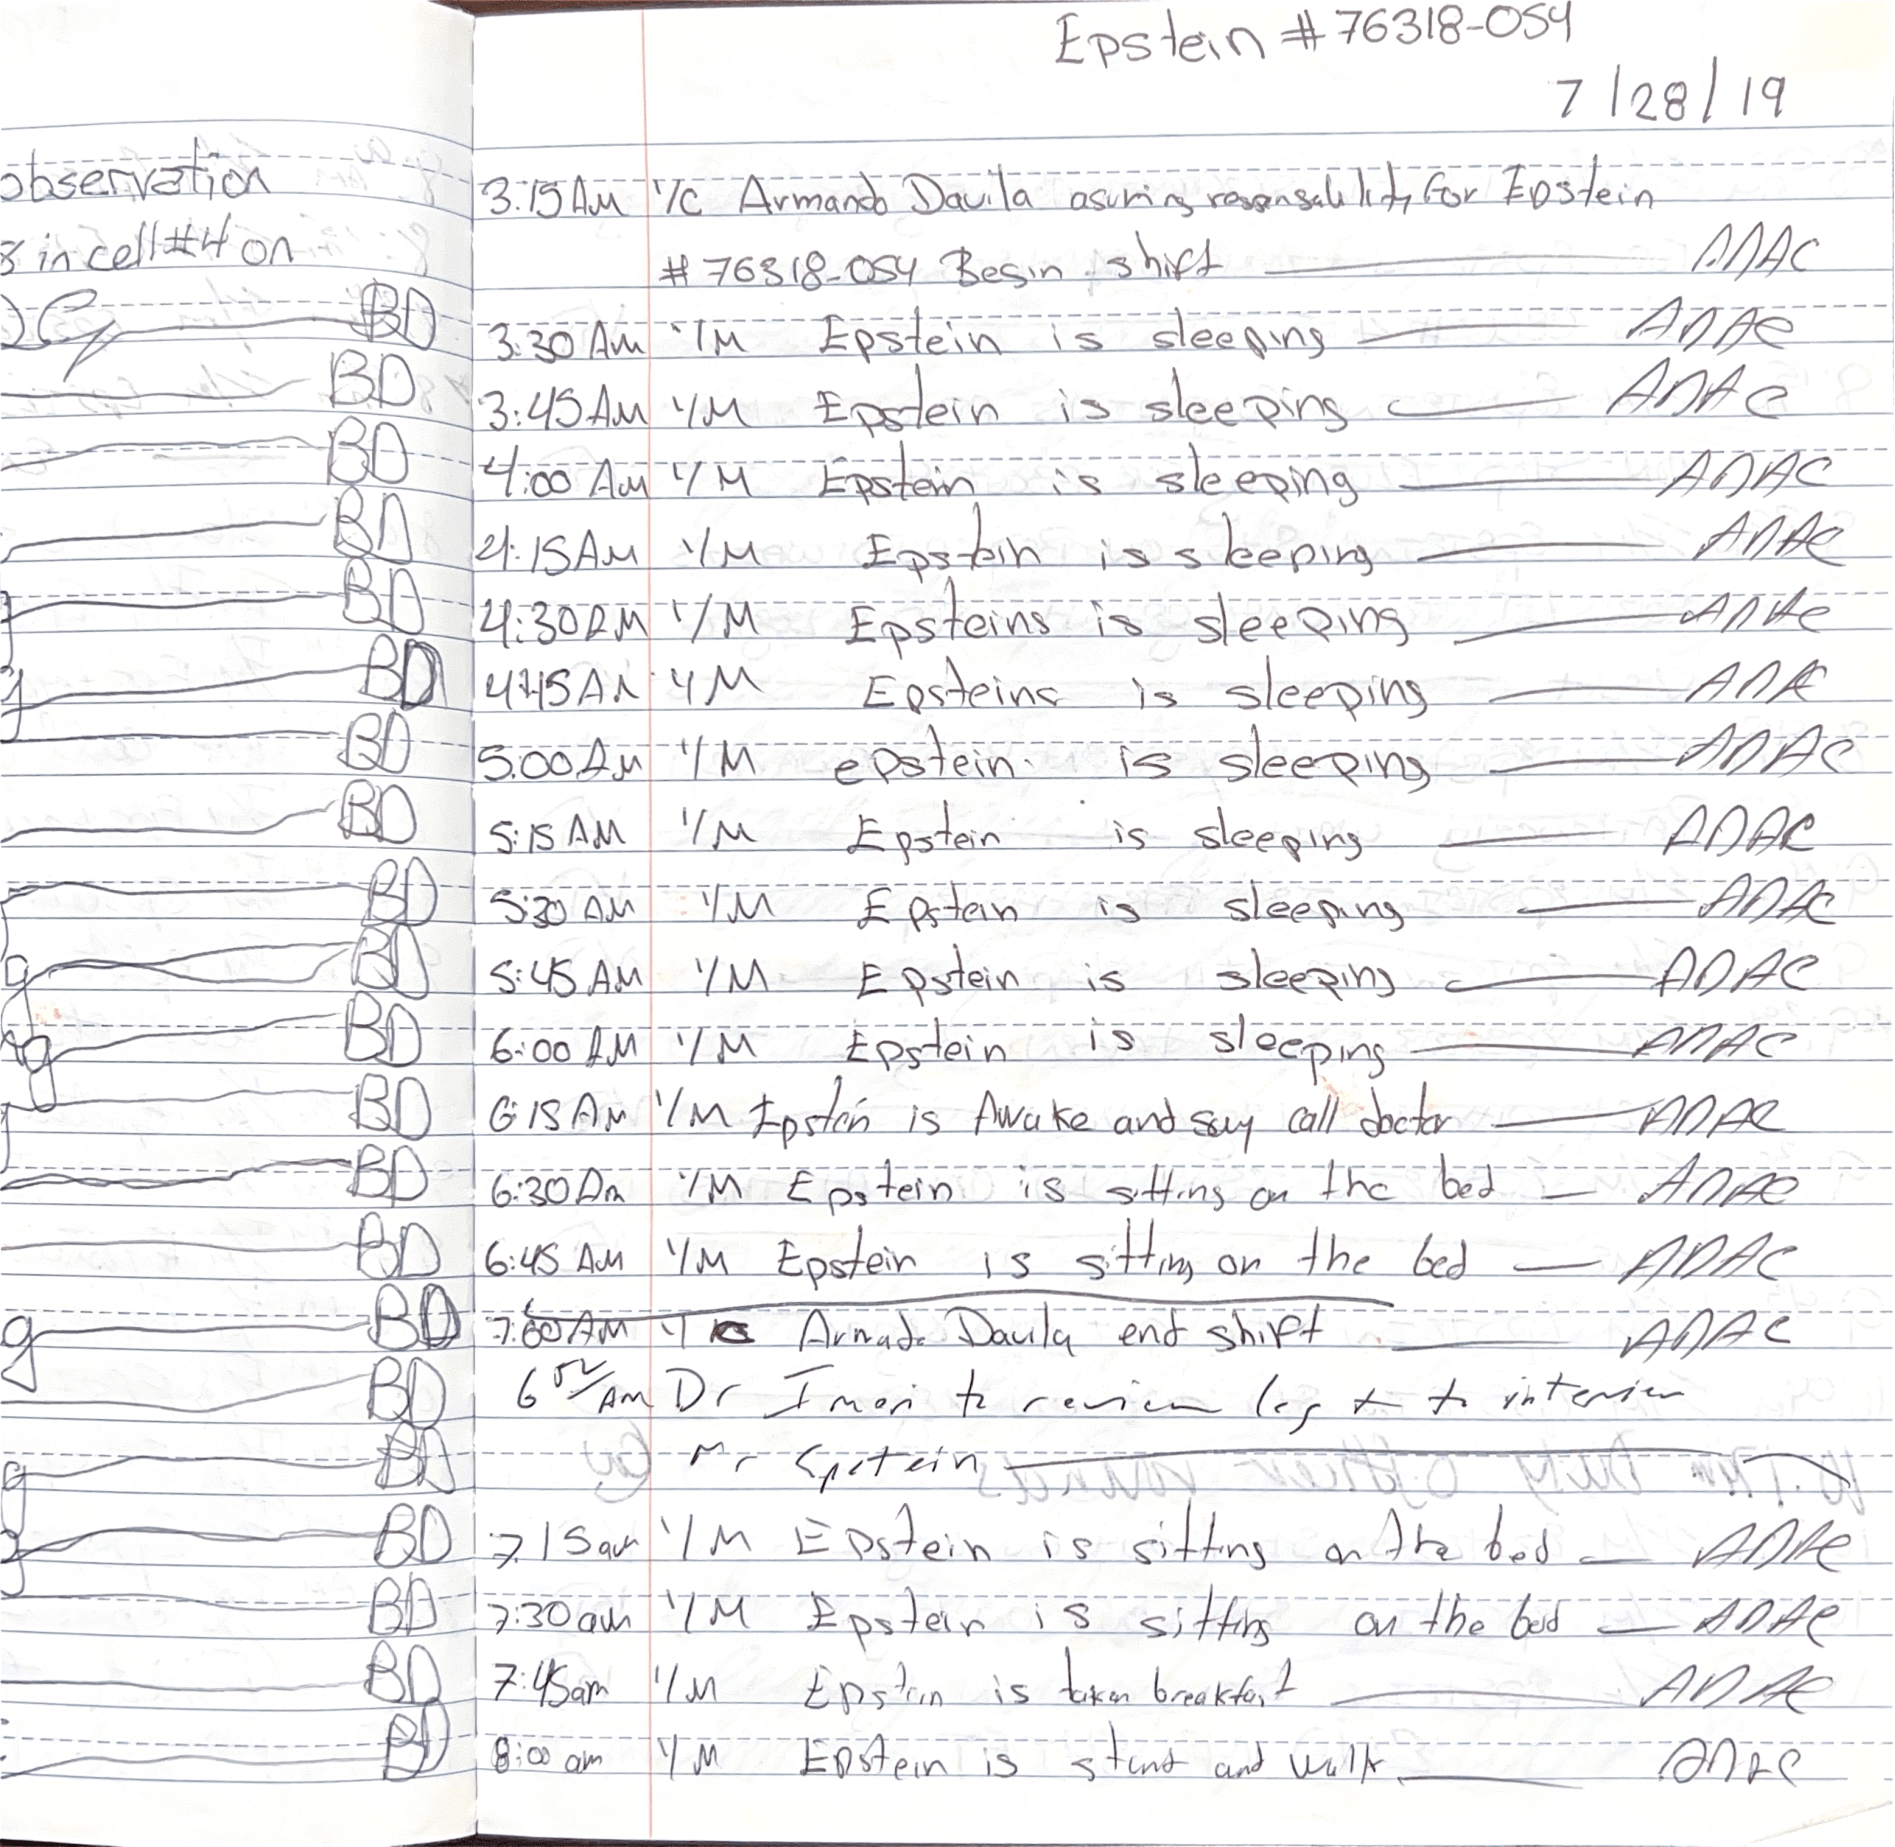 Epstein # 76318-054
7/28/19
observation
in cell #4 on
BD
BD
BD
BD
BD
BD
BD
BD
BD
BD
BD
BD
BD
BD
BD
BD
BD
BD
BD
BD
BD
3:15 AM I/C Armando Davila asuring responsability for Epstein
# 76318-054 Begin shift ADAC
3:30 AM I/M Epstein is sleeping ADAC
3:45 AM I/M Epstein is sleeping ADAC
4:00 AM I/M Epstein is sleeping ADAC
4:15 AM I/M Epstein is sleeping ADAC
4:30 AM I/M Epsteins is sleeping ADAC
4:45 AM I/M Epsteins is sleeping ADAC
5:00 AM I/M epstein is sleeping ADAC
5:15 AM I/M Epstein is sleeping ADAC
5:30 AM I/M Epstein is sleeping ADAC
5:45 AM I/M Epstein is sleeping ADAC
6:00 AM I/M Epstein is sleeping ADAC
6:15 AM I/M Epstein is Awake and say call doctor ADAC
6:30 Am I/M Epstein is sitting on the bed ADAC
6:45 AM I/M Epstein is sitting on the bed ADAC
7:00 AM I/C Davila end shift ADAC
AM Dr to review log to interview
Mr Epstein
7:15 am I/M Epstein is sitting on the bed ADAC
7:30 am I/M Epstein is sitting on the bed ADAC
7:45 am I/M Epstein is taken breakfast ADAC
8:00 am I/M Epstein is stand and walk ADAC